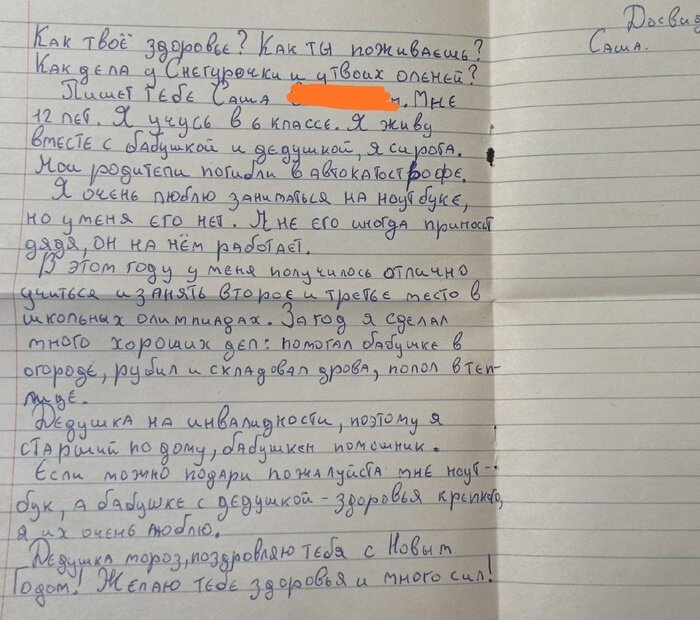 Досвид
Саша.
Как твоё здоровье? Как ты поживаешь?
Как дела у Снегурочки и у твоих оленей?
Пишет тебе Саша
Мне
12 лет. Я учусь в 6 классе. Я живу
вместе с бабушкой и дедушкой, я сирота.
Мои родители погибли в автокатострофе.
Я очень люблю заниматься на ноутбуке,
но у меня его нет. Мне его иногда приносит
дядя, он на нём работает.
В этом году у меня получилось отлично
учиться и занять второе и третье место в
школьных олимпиадах. За год я сделал
много хороших дел: помогал бабушке в
огороде, рубил и складовал дрова, полол в теп-
лице.
Дедушка на инвалидности, поэтому я
старший по дому, бабушкен помошник.
Если можно подари пожалуйста мне ноут-
бук, а бабушке с дедушкой - здоровья крепкого,
я их очень люблю.
Дедушка мороз, поздровляю тебя с Новым
Годом! Желаю тебе здоровья и много сил!